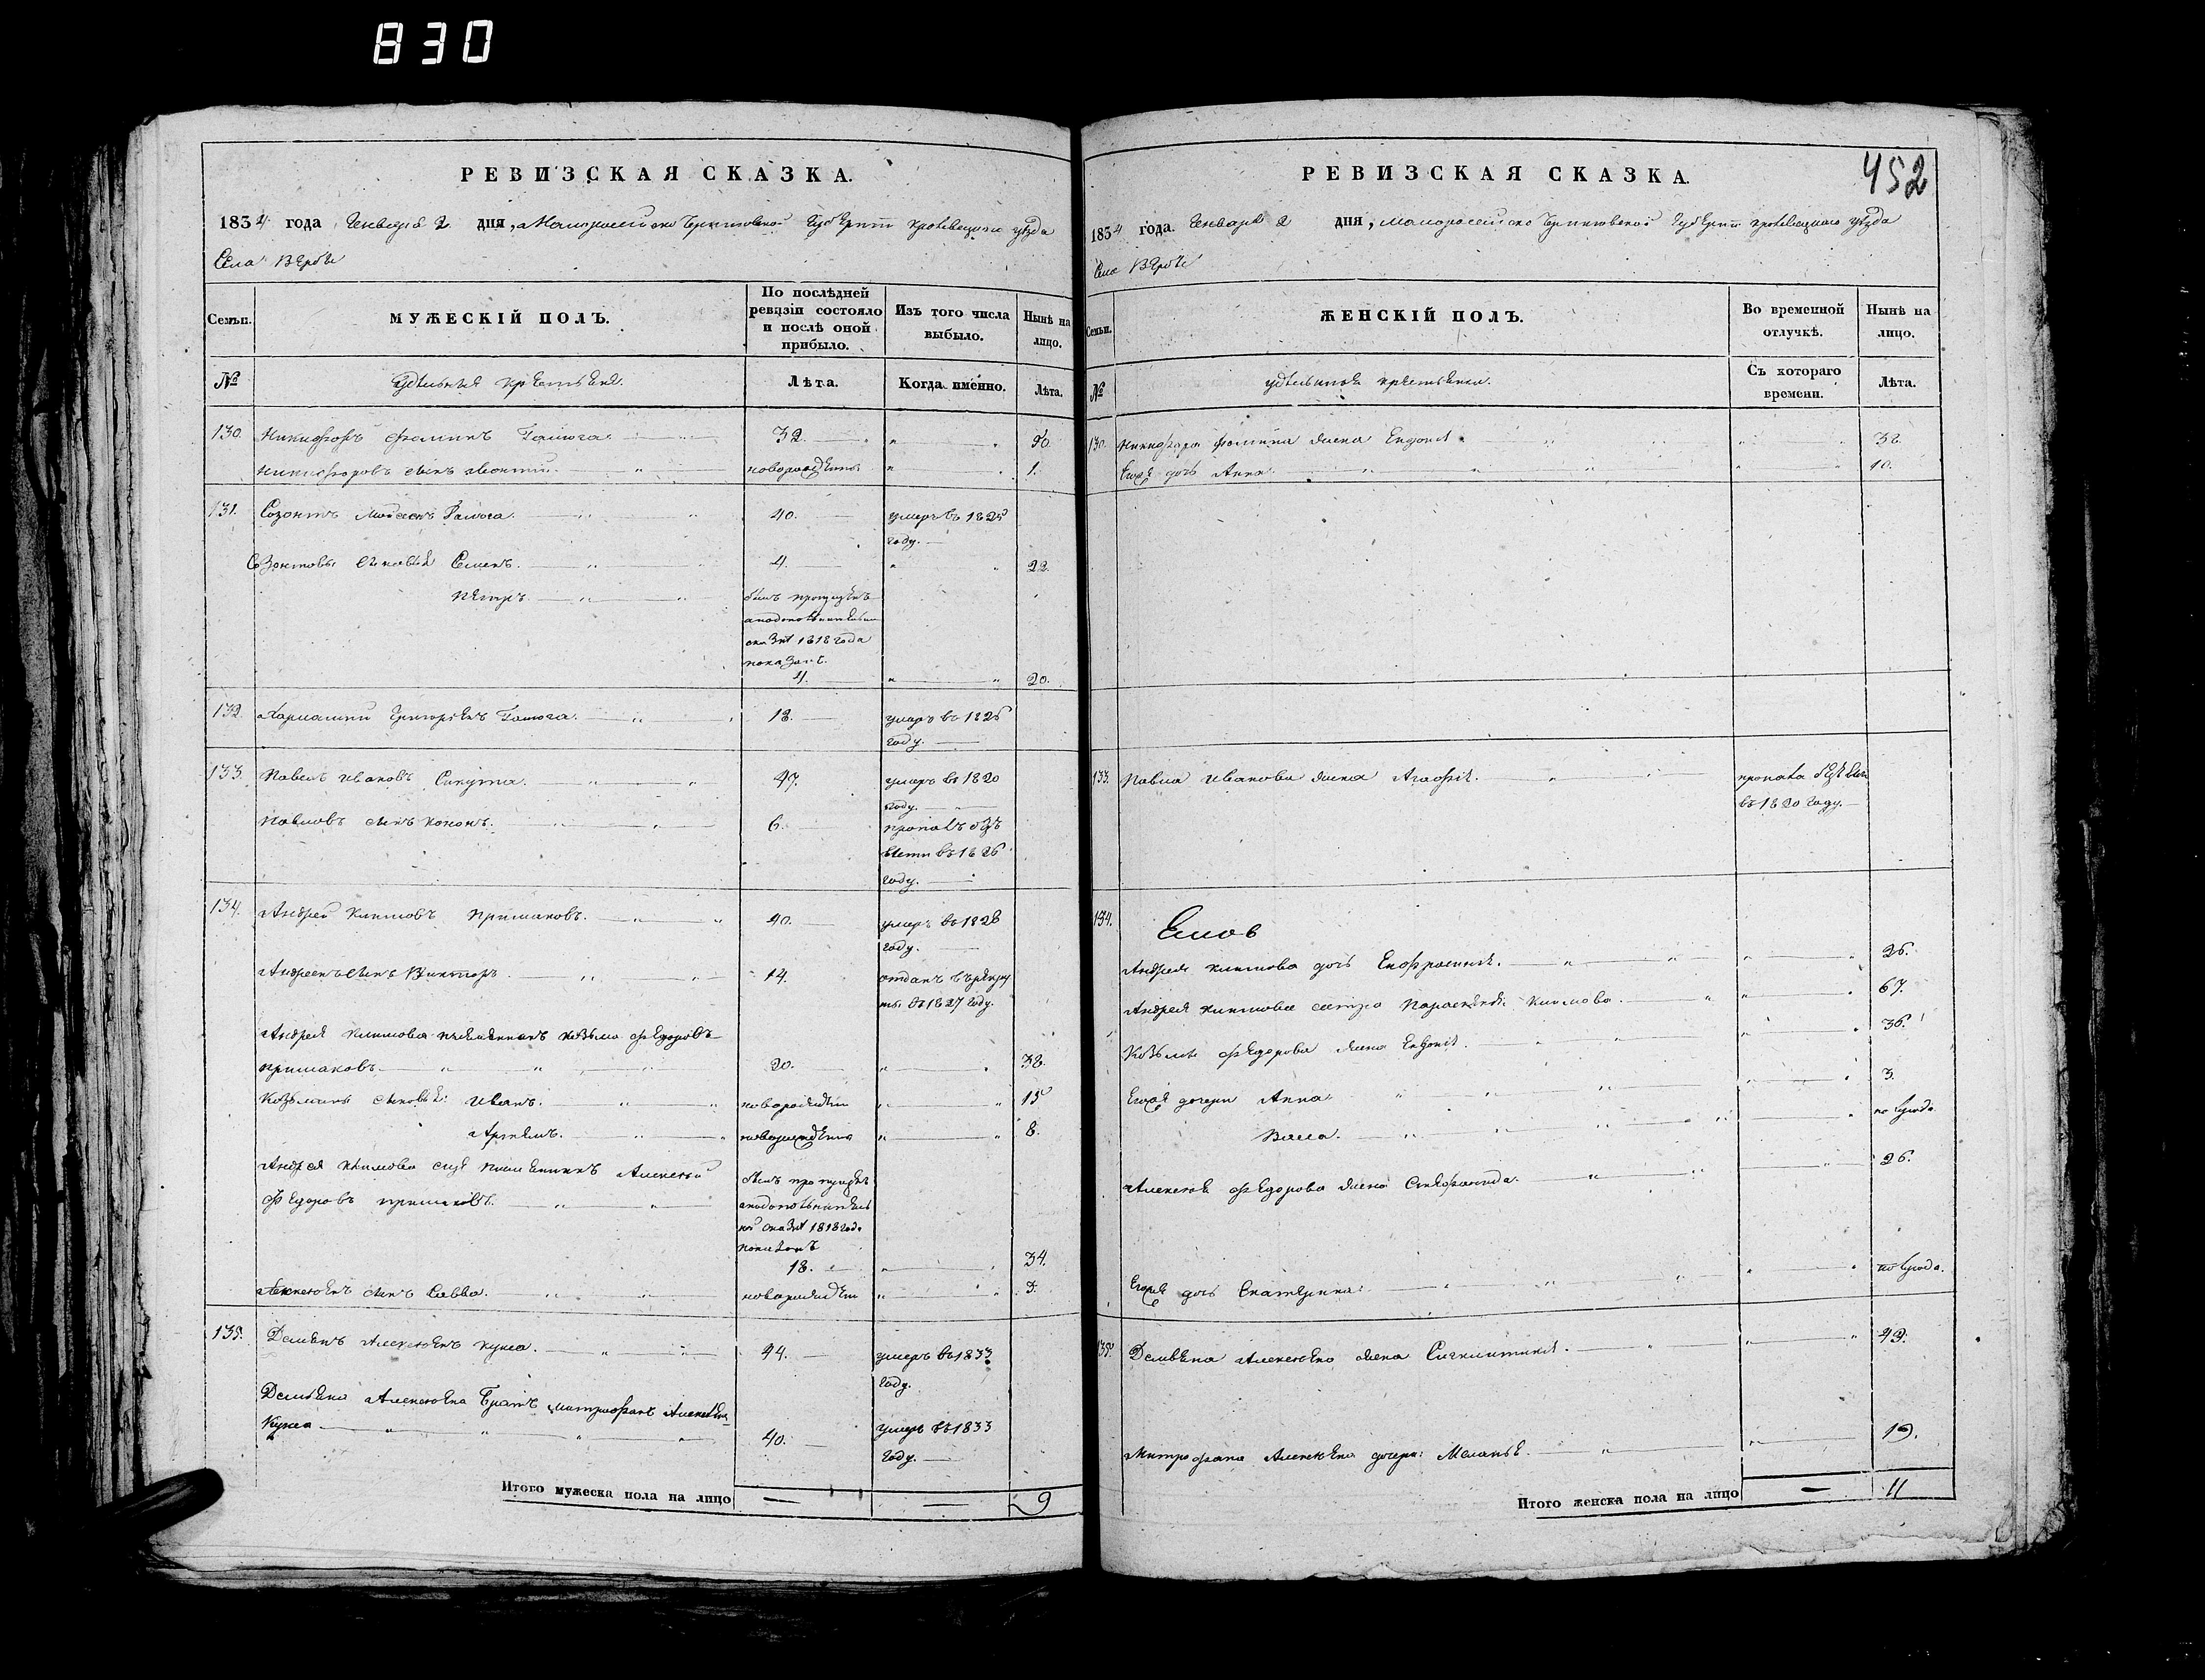 830
РЕВИЗСКАЯ СКАЗКА.
1834 года Генваря 2 дня, Малороссійско Черниговской Губерніи Кролевецкаго уезда
Села Вербы
Семьи.
МУЖЕСКІЙ ПОЛЪ.
По послѣдней ревизіи состояло и послѣ оной прибыло.
Изъ того числа выбыло.
Нынѣ на лицо.
№
Удельныя крестьяне.
Лѣта.
Когда именно.
Лѣта.
130. Никифоръ Фоминъ Галюга. 32. 50.
Никифоровъ сынъ новорожденный 1.
131. Созонтъ Галюга. 40. умеръ въ 1825
году.
Созонтовы сыновья Семенъ. 4. 22.
Петръ. былъ пропущенъ
а по дополнительной
сказке 1818 года
показанъ.
4. 20.
132. Харлампий Григорьевъ Галюга. 18. умеръ въ 1826
году.
133. Павелъ Ивановъ Сикута. 47. умеръ въ 1820
году.
Павловъ сынъ Кононъ. 6. пропалъ безъ
вести въ 1826
году.
134. Андрей Климовъ Примаковъ. 40. умеръ въ 1828
году.
Андреевъ сынъ Викторъ 14. отданъ въ рекру
ты въ 1827 году.
Андрея Климова племянникъ Козьма Федоровъ
Примаковъ 20. 38.
Козьмины сыновья: Иванъ. новорожденный 15
Артемъ. новорожденный 8.
Андрея Климова еще племянникъ Алексей
Федоровъ Примаковъ. былъ пропущенъ
а по дополнитель
ной сказке 1818 года
показанъ
18. 34.
Алексеевъ сынъ Савва. новорожденный 3.
135. Демьянъ Алексеевъ Кукса. 44. умеръ въ 1833
году.
Демьяна Алексеева братъ Митрофанъ Алексеевъ
Кукса 40. умеръ въ 1833
году.
Итого мужеска пола на лицо 9
452
РЕВИЗСКАЯ СКАЗКА.
1834 года. Генваря 2 дня, Малороссійско Черниговской Губерніи Кролевецкаго уезда
Села Вербы
Семьи.
ЖЕНСКІЙ ПОЛЪ.
Во временной отлучкѣ.
Нынѣ на лицо.
№
Удельныя крестьянки.
Съ котораго времени.
Лѣта.
130. Никифора Фомина жена Евдокия. 32.
Егоже дочь Анна. 10.
133. Павла Иванова жена Агафия. пропала безъ вести
въ 1820 году.
134.
Андрея Климова дочь Евфросиния. 26.
Андрея Климова сестра Параскевия Климова. 67.
Козьмы Федорова жена Евдокия. 36.
Егоже дочери Анна 3.
Васса. полугода
Алексея Федорова жена Стефанида. 26.
Егоже дочь Екатерина. полугода.
135. Демьяна Алексеева жена Синклитикия. 49.
Митрофана Алексеева дочери: Меланья. 19.
Итого женска пола на лицо 11